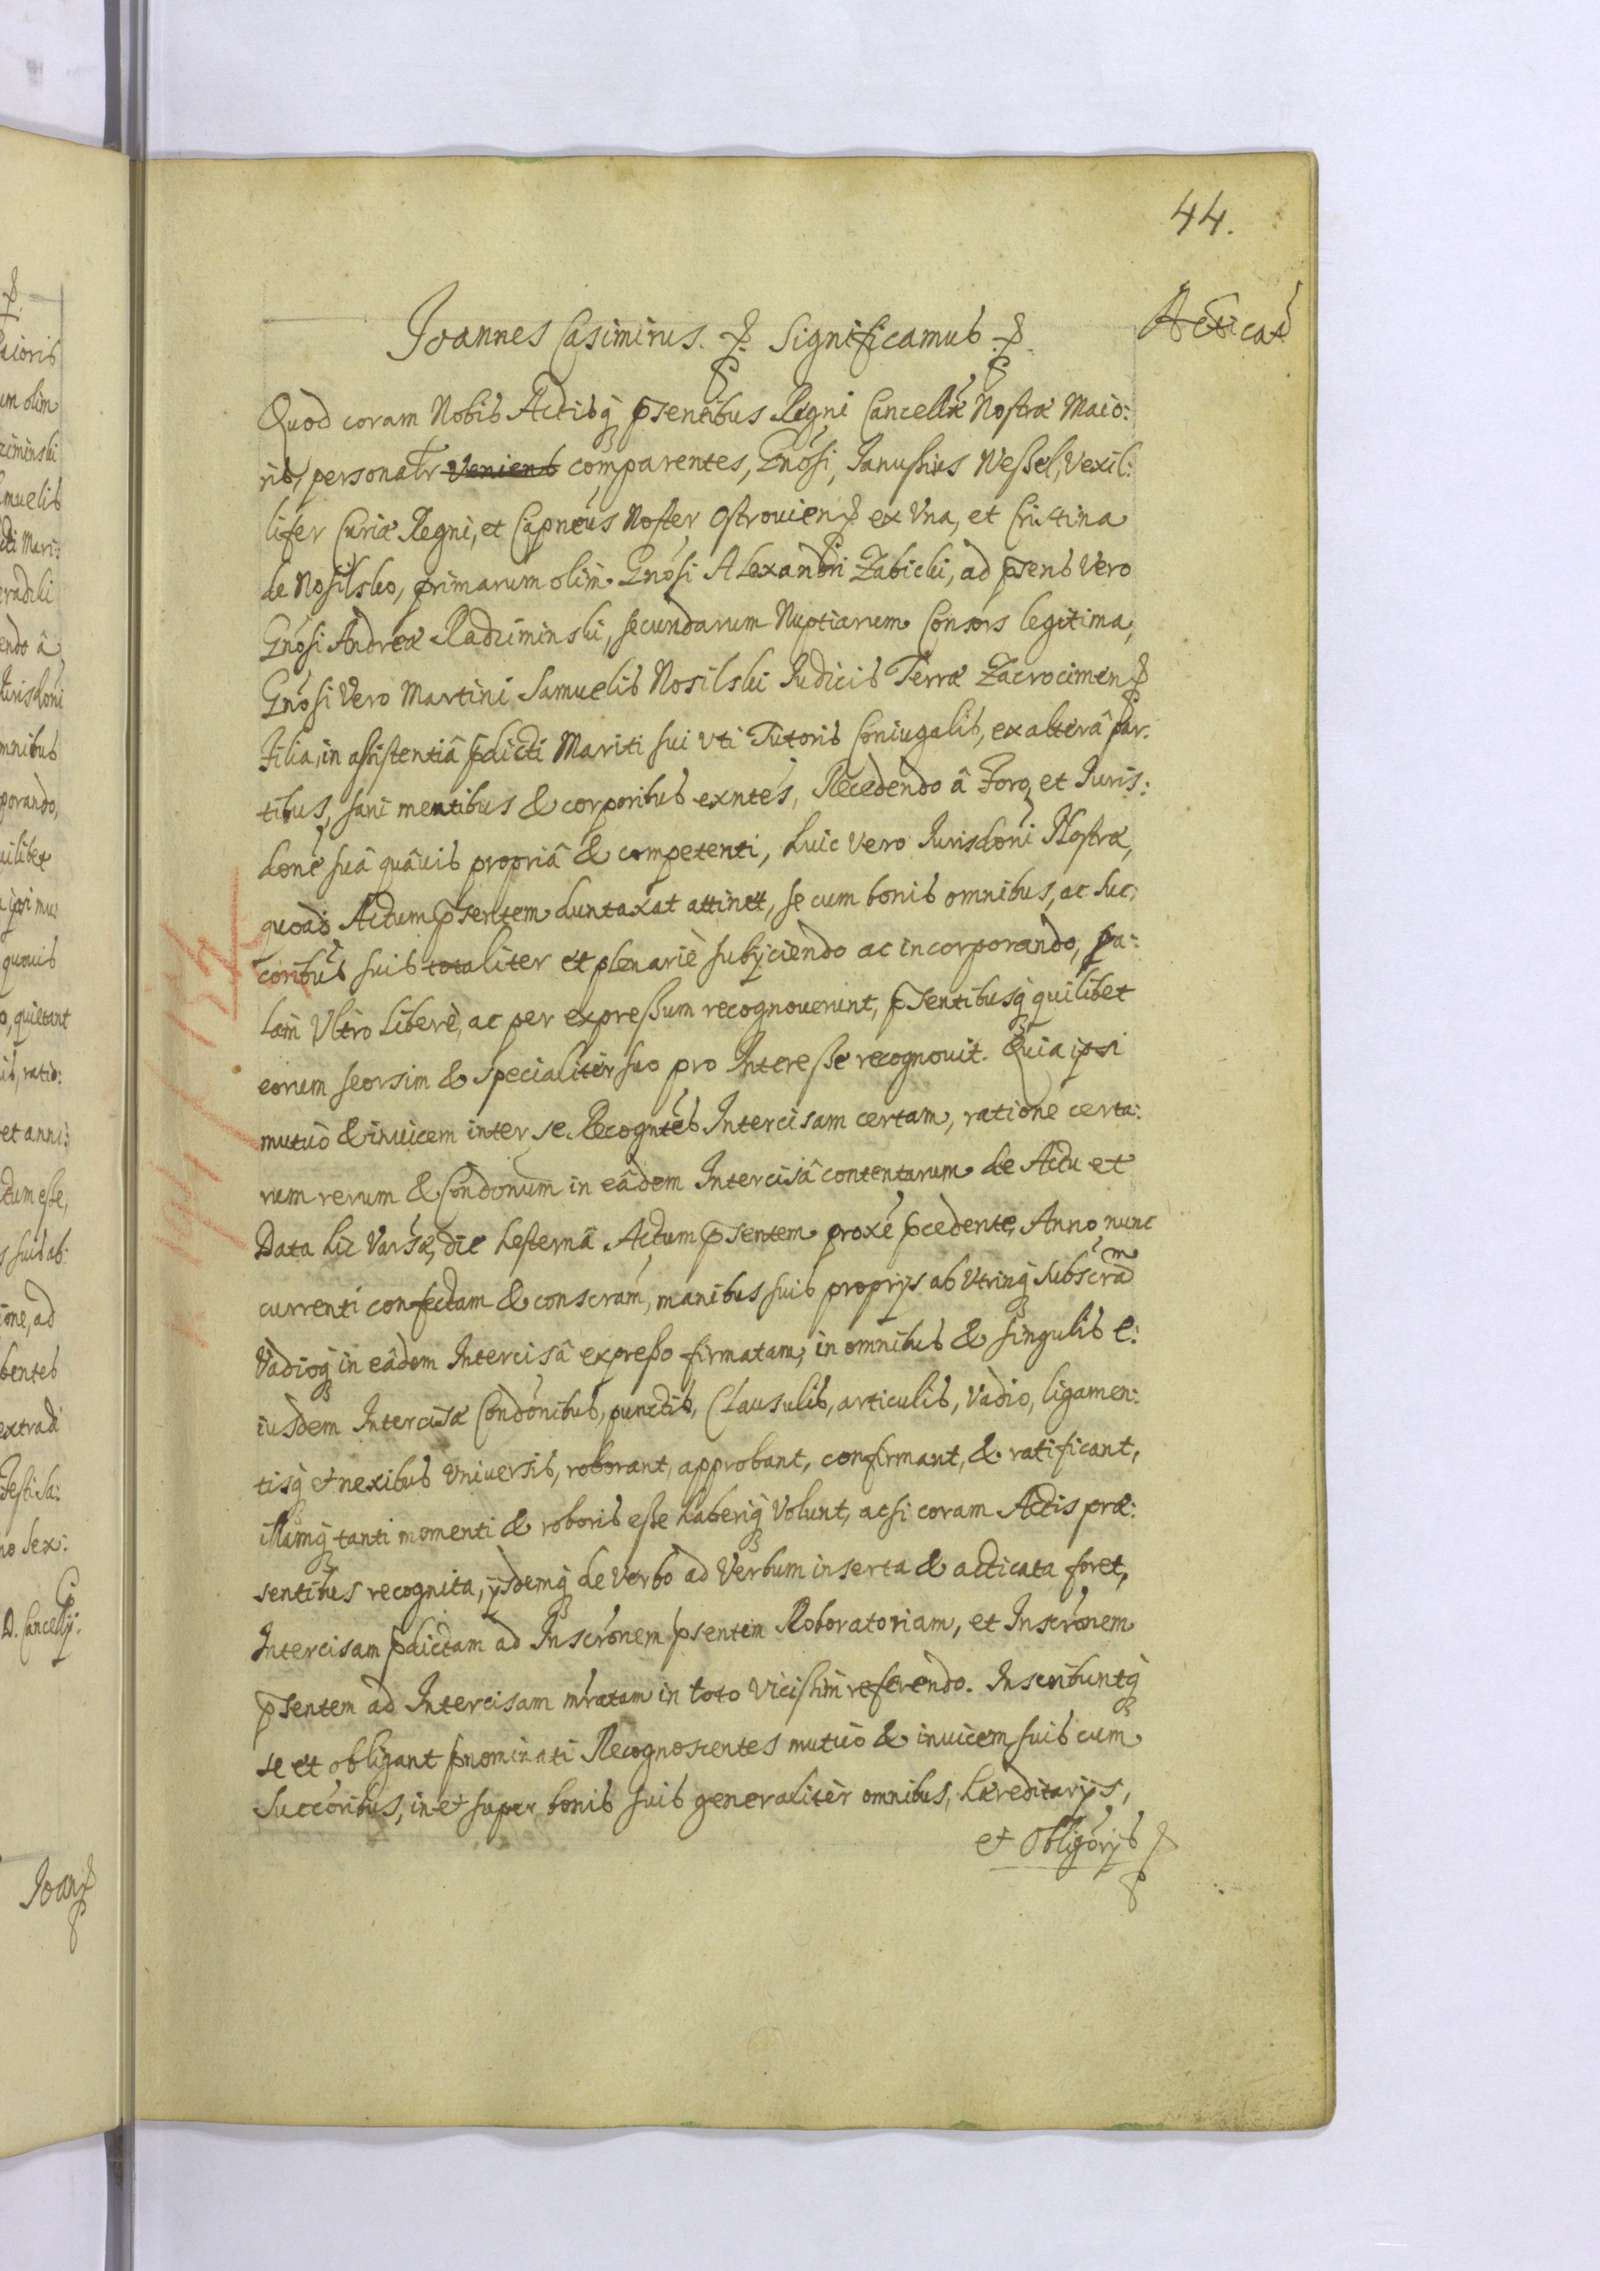 44.
Acticat
Joannes Casimirus. Significamus
Quod coram Nobis Actisq̃ p̃sentibus Regni Cancellr̃æ Nostræ Maio:
ris, personalr̃ Veniens comparentes, Gñosi, Janussius Weßel, Vexil:
lifer Curiæ Regni, et Capneus Noster Ostrouien ex Vna, et Cristina
de Nosilsko, primarum olim Gñosi Alexandri Zabicki, ad p̃sens Vero
Gñosi Andreæ Radziminski, secundarum Nuptiarum Consors legitima,
Gñosi Vero Martini Samuelis Nosilski Judicis Terræ Zacrocimen
Filia, in assistentiâ p̃dicti Mariti sui Vti Tutoris Coniugalis, ex alterâ par:
tibus, sani mentibus & corporibus exñtes, Recedendo â Foro, et Juris:
done suâ quâuis propriâ & competenti, huic vero Jurisdoni Nostræ,
quoad Actum p̃sentem duntaxat attinet, se cum bonis omnibus, ac suc:
coribus suis totaliter et plenariè subijciendo ac incorporando, pa:
lam Vltro liberè, ac per expreßum recognouerunt, p̃sentibusq̃ quilibet
eorum seorsim & specialiter suo pro Intereße recognouit. Quia ipsi
mutuò & inuicem inter se Recogntes Intercisam certam, ratione certa:
rum rerum & Condonum in eâdem Intercisâ contentarum de Actu et
Data hic Varsæ, die hesternâ Actum p̃sentem proxe p̃cedente, Anno nunc
currenti confectam & conscram, manibus suis proprijs ab Vtrinq̃ subscram
Vadioq̃ in eâdem Intercisâ expreßo firmatam, in omnibus & singulis e:
iusdem Intercisæ Condonibus, punctis, Clausulis, articulis, Vadio, ligamen:
tisq̃ et nexibus Vniuersis, roborant, approbant, confirmant, & ratificant,
illamq̃ tanti momenti & roboris eße haberiq̃ Volunt, acsi coram Actis præ:
sentibus recognita, ijsdemq̃ de Verbo ad Verbum inserta & acticata foret,
Intercisam p̃dictam ad Inscronem p̃sentem Roboratoriam, et Inscronem
p̃sentem ad Intercisam mratam in toto Vicißim referendo. Inscribuntq̃
se et obligant p̃nominati Recognoscentes mutuò & inuicem suis cum
Succoribus, in et super bonis suis generaliter omnibus, hæreditarijs,
et Obligorijs